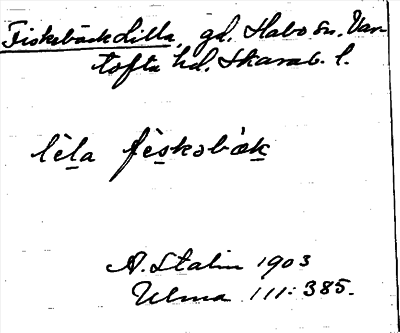 Fiskebäck Lilla, gd. Habo sn. Var
tofta hd. Skarab. l.
lèla fèskəbæk
A. Stalin 1903
Ulma 111:385.